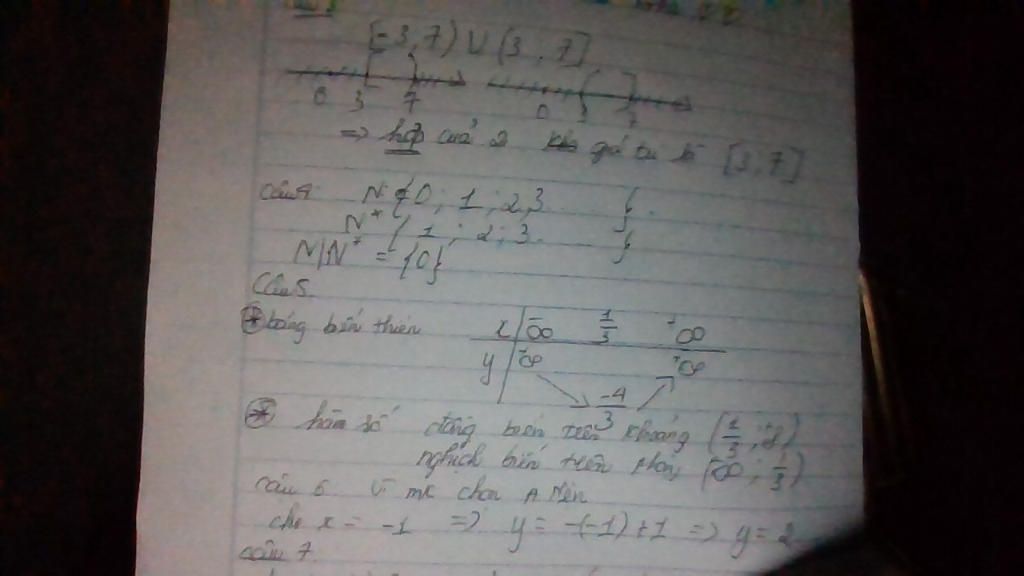 [-3,7) U (3, 7]
0 3 7 0 3 7
=> hợp của 2 [3; 7]
Câu 4 N {0; 1; 2, 3 }
N* { 1; 2; 3. }
N|N* = {0}
Câu 5.
* bảng biến thiên x -∞ 1/3 +∞
y +∞ +∞
-4/3
* hàm số đồng biến trên khoảng (1/3;
nghịch biến trên (-∞; 1/3)
câu 6. Vì mk chọn A Nên
cho x = -1 => y = -(-1)+1 => y = 2
câu 7.